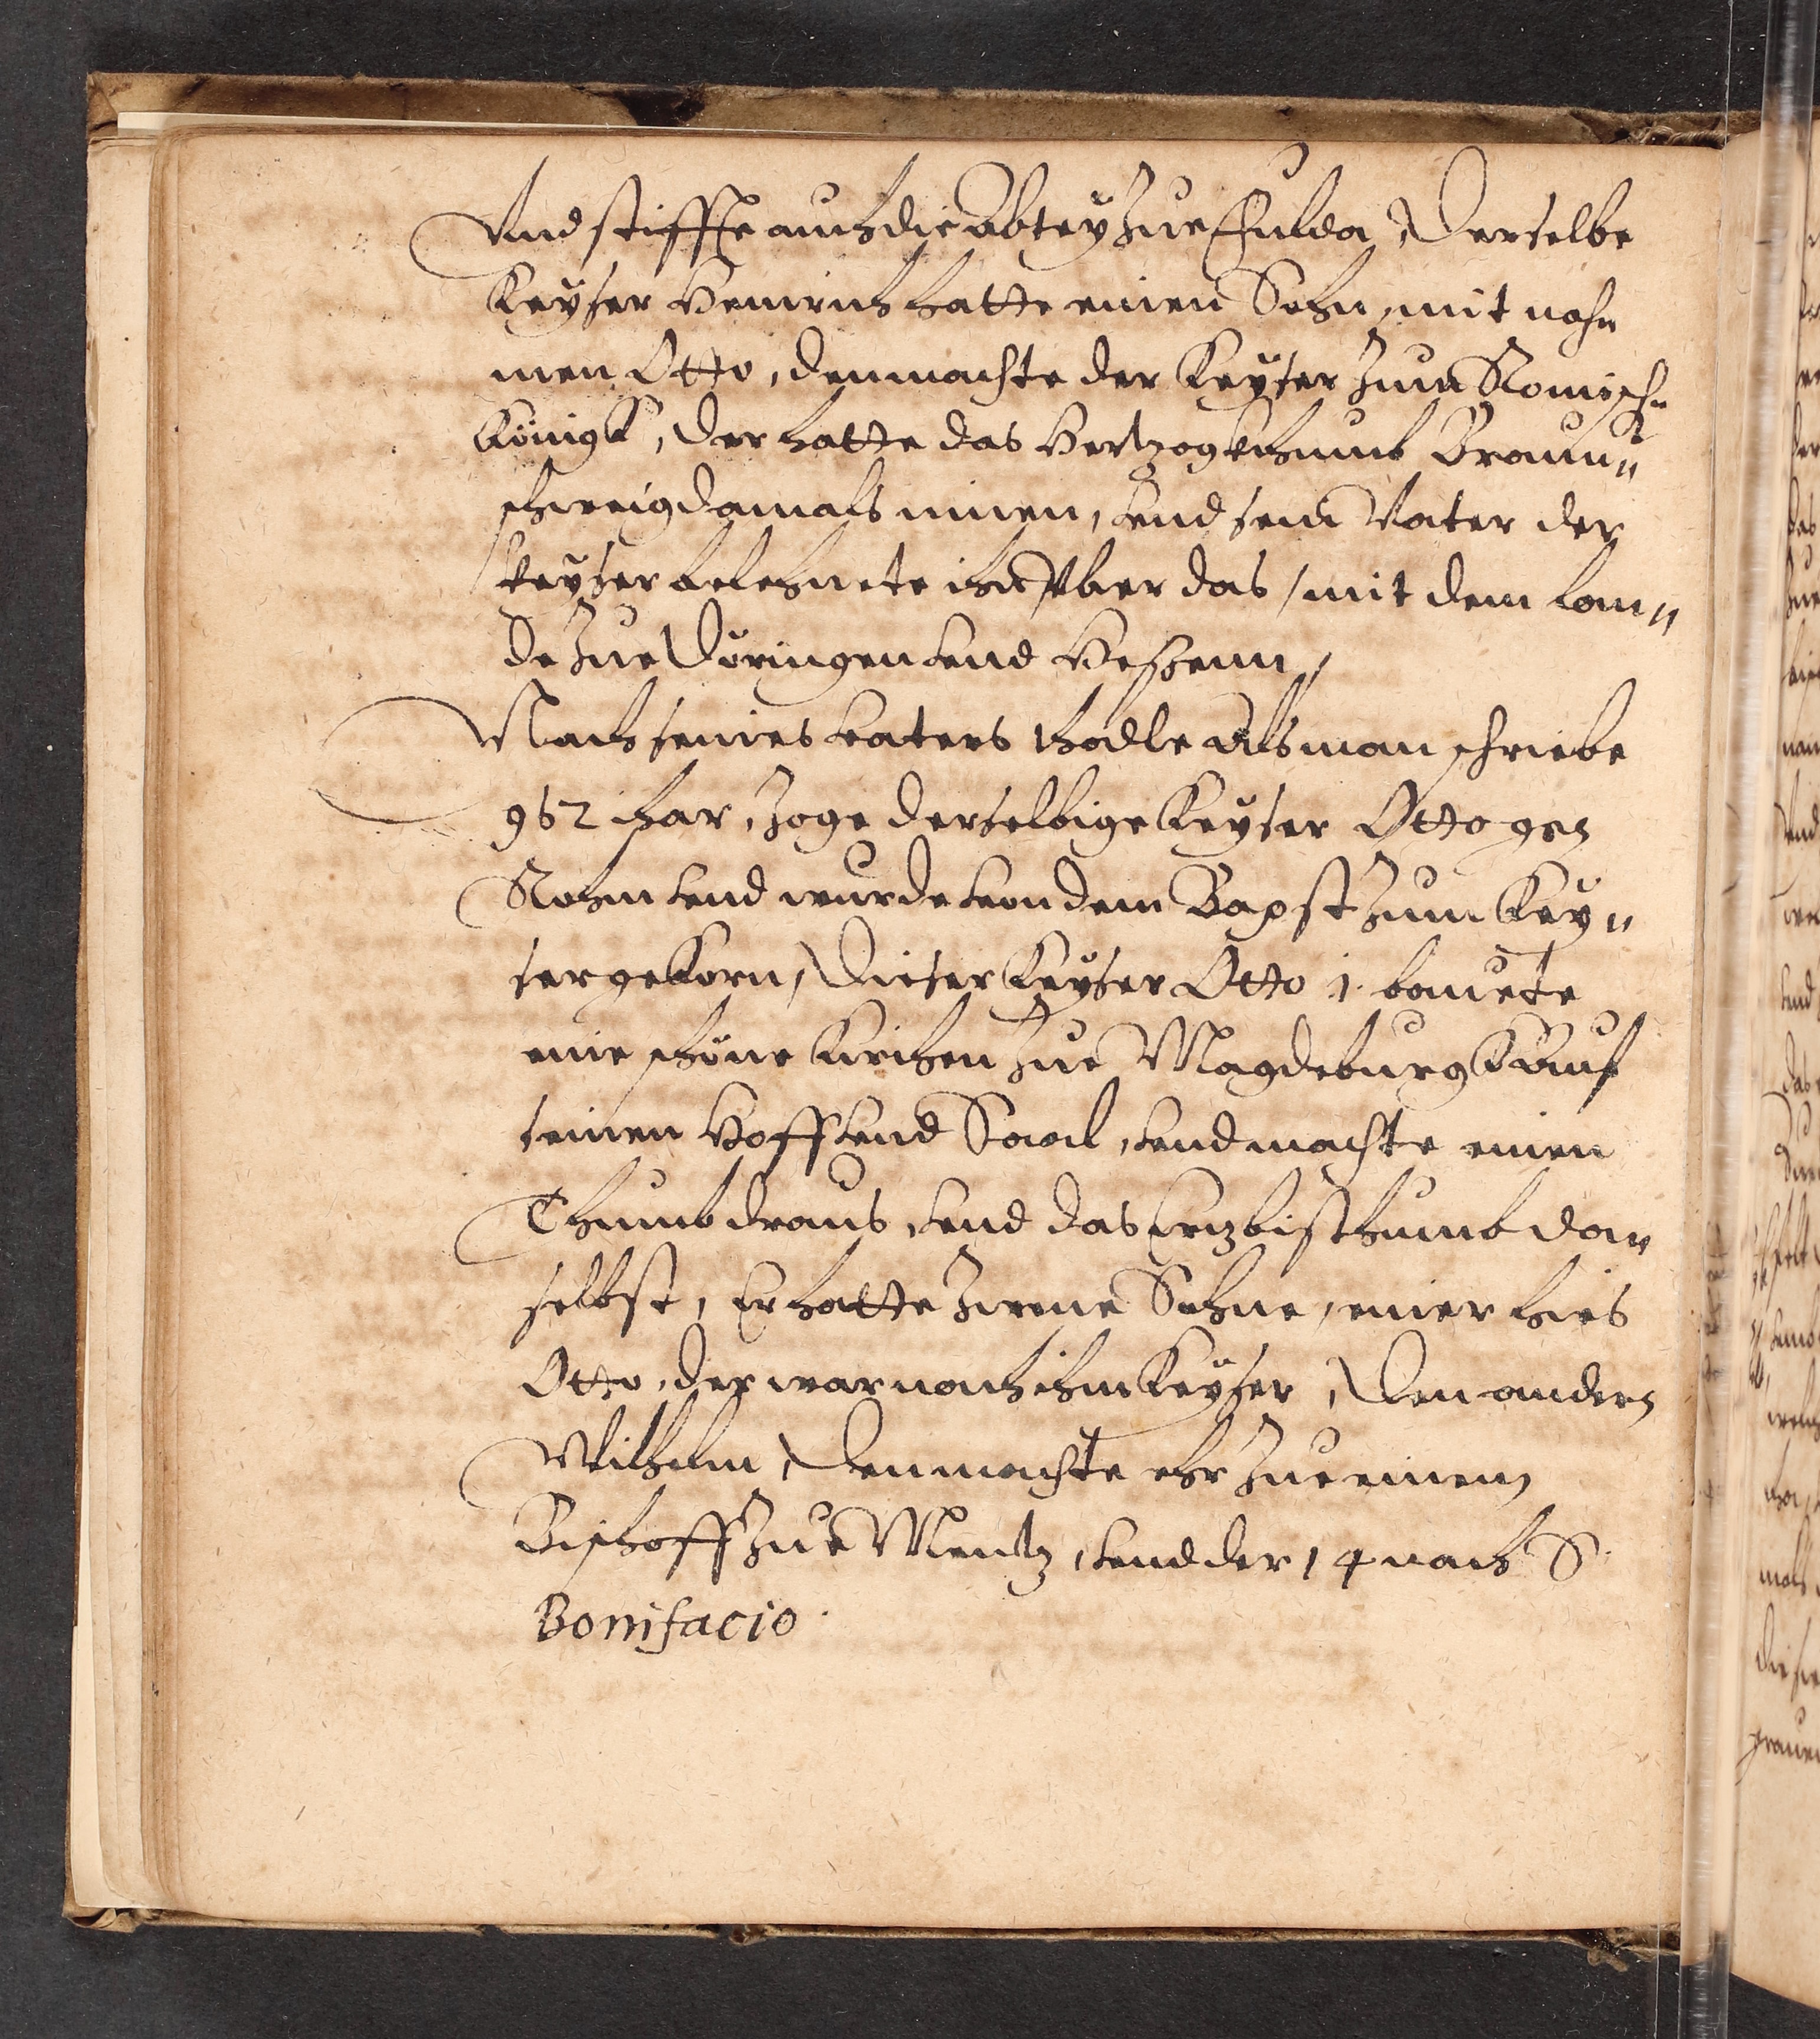 Vnd stiffte auch die Abtey zue Fulda, Derselbe
Keyser Heinrich hatte einen Sohn, mit nah„
men Otto, den machte der Keyser zum Romisch„
Königk, der hatte das Hertzogkthumb Braun„
schweig damals innen, vnd sein Vater der
keyser belehnete ihn vber das, mit dem lan„
de zue Düringen vnd Heßenn,
Nach seines vaters thodte als man schriebe
962 ihar, zoge derselbige Keyser Otto gen
Rohm vnd wurde von dem Bapst zum Key„
ser gekorn, Dieser Keyser Otto 1. bauete
eine schöne Kirchen zue Magdeburgk auf
seinen Hoff vnd Saal, vnd machte einen
Thumb draus, vnd das Ertzbisthumb da„
selbst, Er hatte zwene Sohne, einer hies
Otto, der war nach ihm Keyser, Den andern
Wilhelm, Den machte ehr zue einem
Bischoff zue Mentz, vnd der 14 nach S.
Bonifacio.